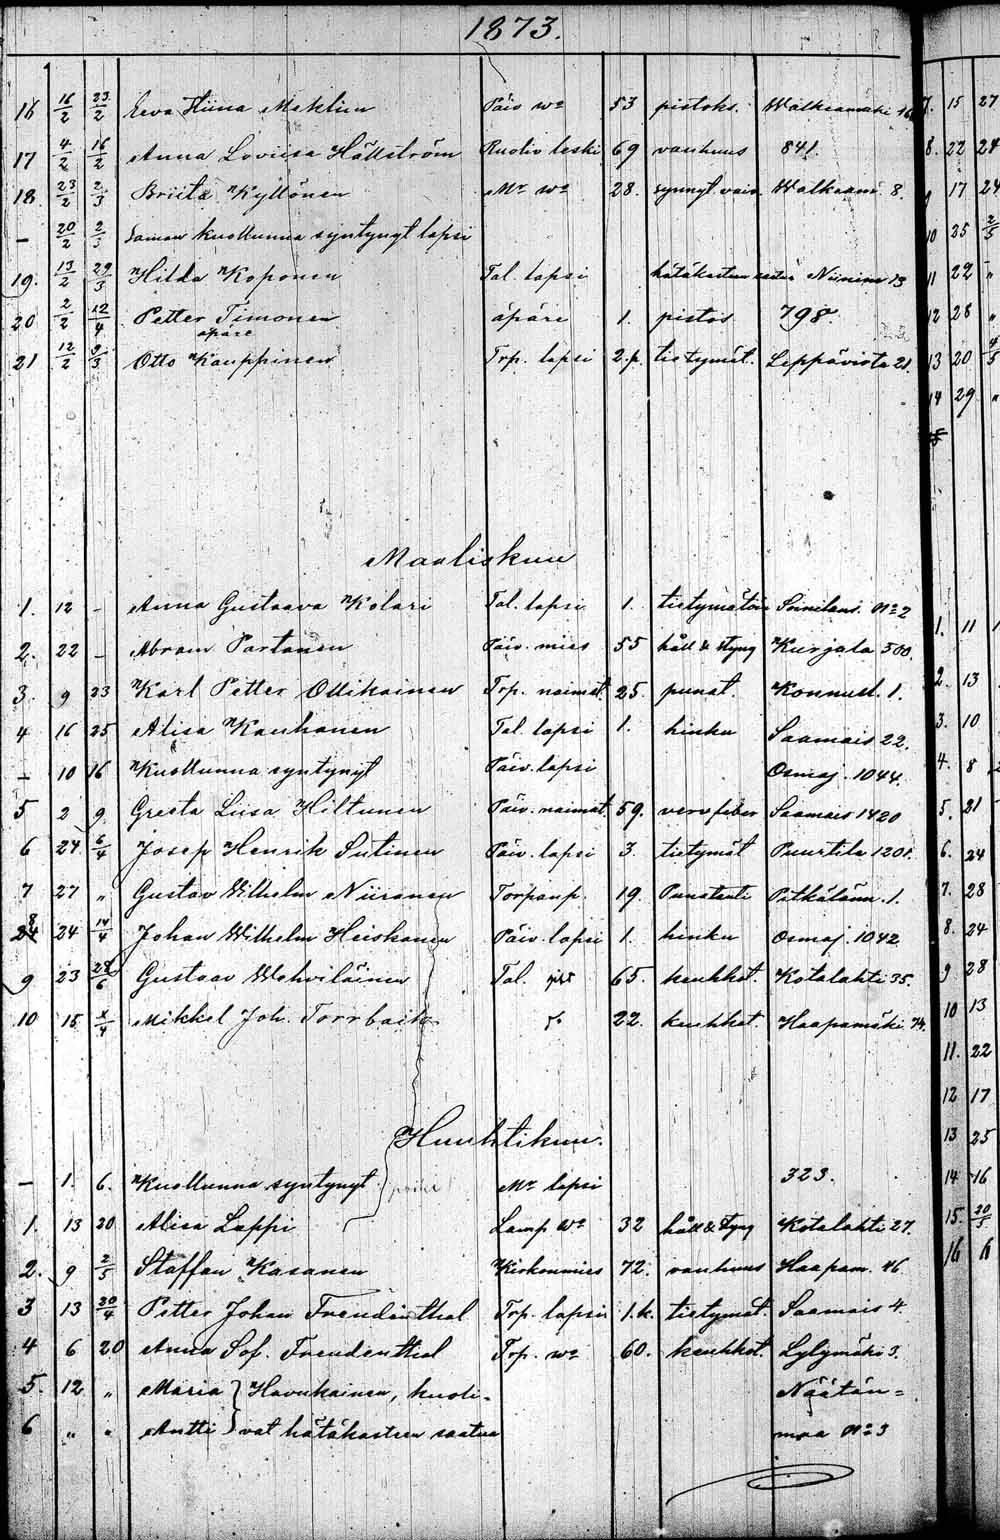 1873.
16 16/2 23/2 Eeva Stiina Meklin Päiv wo 53 pistoks. Walkeamäki 16
17 4/2 16/2 Anna Loviisa Hällström Ruotiv leski 69 vanhuus 841.
18 23/2 2/3 Briita Kyllönen Mn wo 28. synnyt. vaiv. Walkeam. 8.
— 20/2 2/3 Saman kuolluna syntynyt lapsi
19. 13/2 29/3 Hilda Koponen Tal. lapsi hätäkasteen saatua Niinim 13
20 2/2 12/4 Petter Timonen äpäre 1. pistos 798.
äpäre
21 12/2 9/3 Otto Kauppinen Trp. lapsi 2.p. tietymät. Leppävirta 21.
Maaliskuu
1. 12 – Anna Gustaava Kolari Tal. lapsi 1. tietymätöin Soinilans. No 2
2. 22 – Abram Partanen Päiv. mies 55 håll & styng Kurjala 500.
3. 9 23 Karl Petter Ollikainen Trp. naimat. 25. punat. Konnusl. 1.
4 16 25 Alisa Kauhanen Tal. lapsi 1. hinku Saamais 22.
– 10 16 Kuollunna syntynyt Päiv. lapsi Osmaj. 1044.
5 2 9 Greeta Liisa Hiltunen Päiv. naimat. 59. nerv feber Saamais 1420
6 24 6/4 Josep Henrik Sutinen Päiv. lapsi 3. tietymät Puurtila 1201.
7 27 " Gustav Wilhelm Niiranen Torpanp. 19. Punatauti Patkalänn. 1.
8 24 14/4 Johan Wilhelm Heiskanen Päiv. lapsi 1. hinku Osmaj. 1042
9 23 28/6 Gustaav Wehviläinen Tal. 65. keuhkot. Kotalahti 35.
10 15 /4 Mikkel Joh. Torrback do 22. keuhkot. Haapamäki 74.
Huuhtikuu.
– 1. 6. Kuollunna syntynyt Mn lapsi 323.
1. 13 20 Alisa Lappi Lamp. wo 32 håll & styng Kotalahti 27.
2. 9 2/5 Staffan Kasanen Kirkonmies 72. vanhuus Haapam. 46
3 13 20/4 Petter Johan Freudenthal Trp. lapsi 1.k. tietymät. Saamais 4.
4 6 20 Anna Sof. Freudenthal Trp. wo 60. keuhkot. Lylymäki 3.
5. 12 " Maria } Havukainen, kuoli- Näätän=
6 " " Antti } vat hätäkasteen saatua maa No 3
7. 15 27
8. 22 24
9 17 24
10 25 2/5
11 22 "
12 28 "
13 20 4/5
14 29 "
1. 11
2. 13
3. 10
4. 8
5. 21
6. 24
7. 28
8. 24
9 28
10 13
11. 22
12 17
13 25
14 16
15. 20/5
16 6